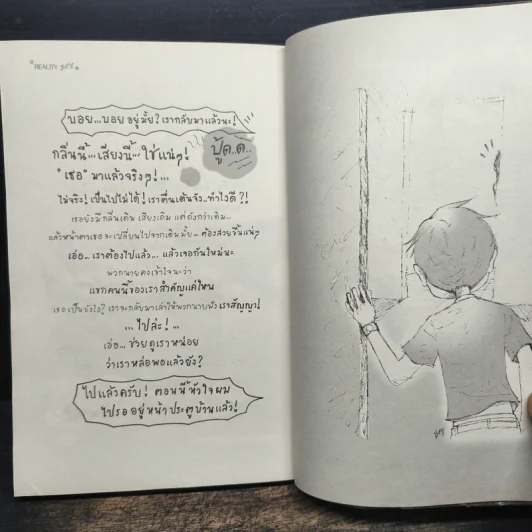 REALITY
บอย...บอย อยู่มั้ย? เรากลับมาแล้วนะ!
กลิ่นนี้...เสียงนี้...ใช่แน่ๆ!
ปู้ด..ด..
"เธอ" มาแล้วจริงๆ!...
ไม่จริง! เป็นไปไม่ได้! เราตื่นเต้นจัง..ทำไงดี?!
เธอยังมีกลิ่นเดิม เสียงเดิม แต่ดังกว่าเดิม...
แล้วหน้าตาเธอจะเปลี่ยนไปจากเดิมมั้ย... ต้องสวยขึ้นแน่ๆ
เอ่อ... เราต้องไปแล้ว... แล้วเจอกันใหม่นะ
พวกนายคงเข้าใจนะว่า
แขกคนนี้ของเราสำคัญแค่ไหน
เธอเป็นยังไง? เราจะกลับมาเล่าให้พวกนายฟัง เราสัญญา!
... ไปล่ะ! ...
เอ่อ... ช่วยดูเราหน่อย
ว่าเราหล่อพอแล้วยัง?
ไปแล้วครับ! ตอนนี้หัวใจผม
ไปรออยู่หน้าประตูบ้านแล้ว!